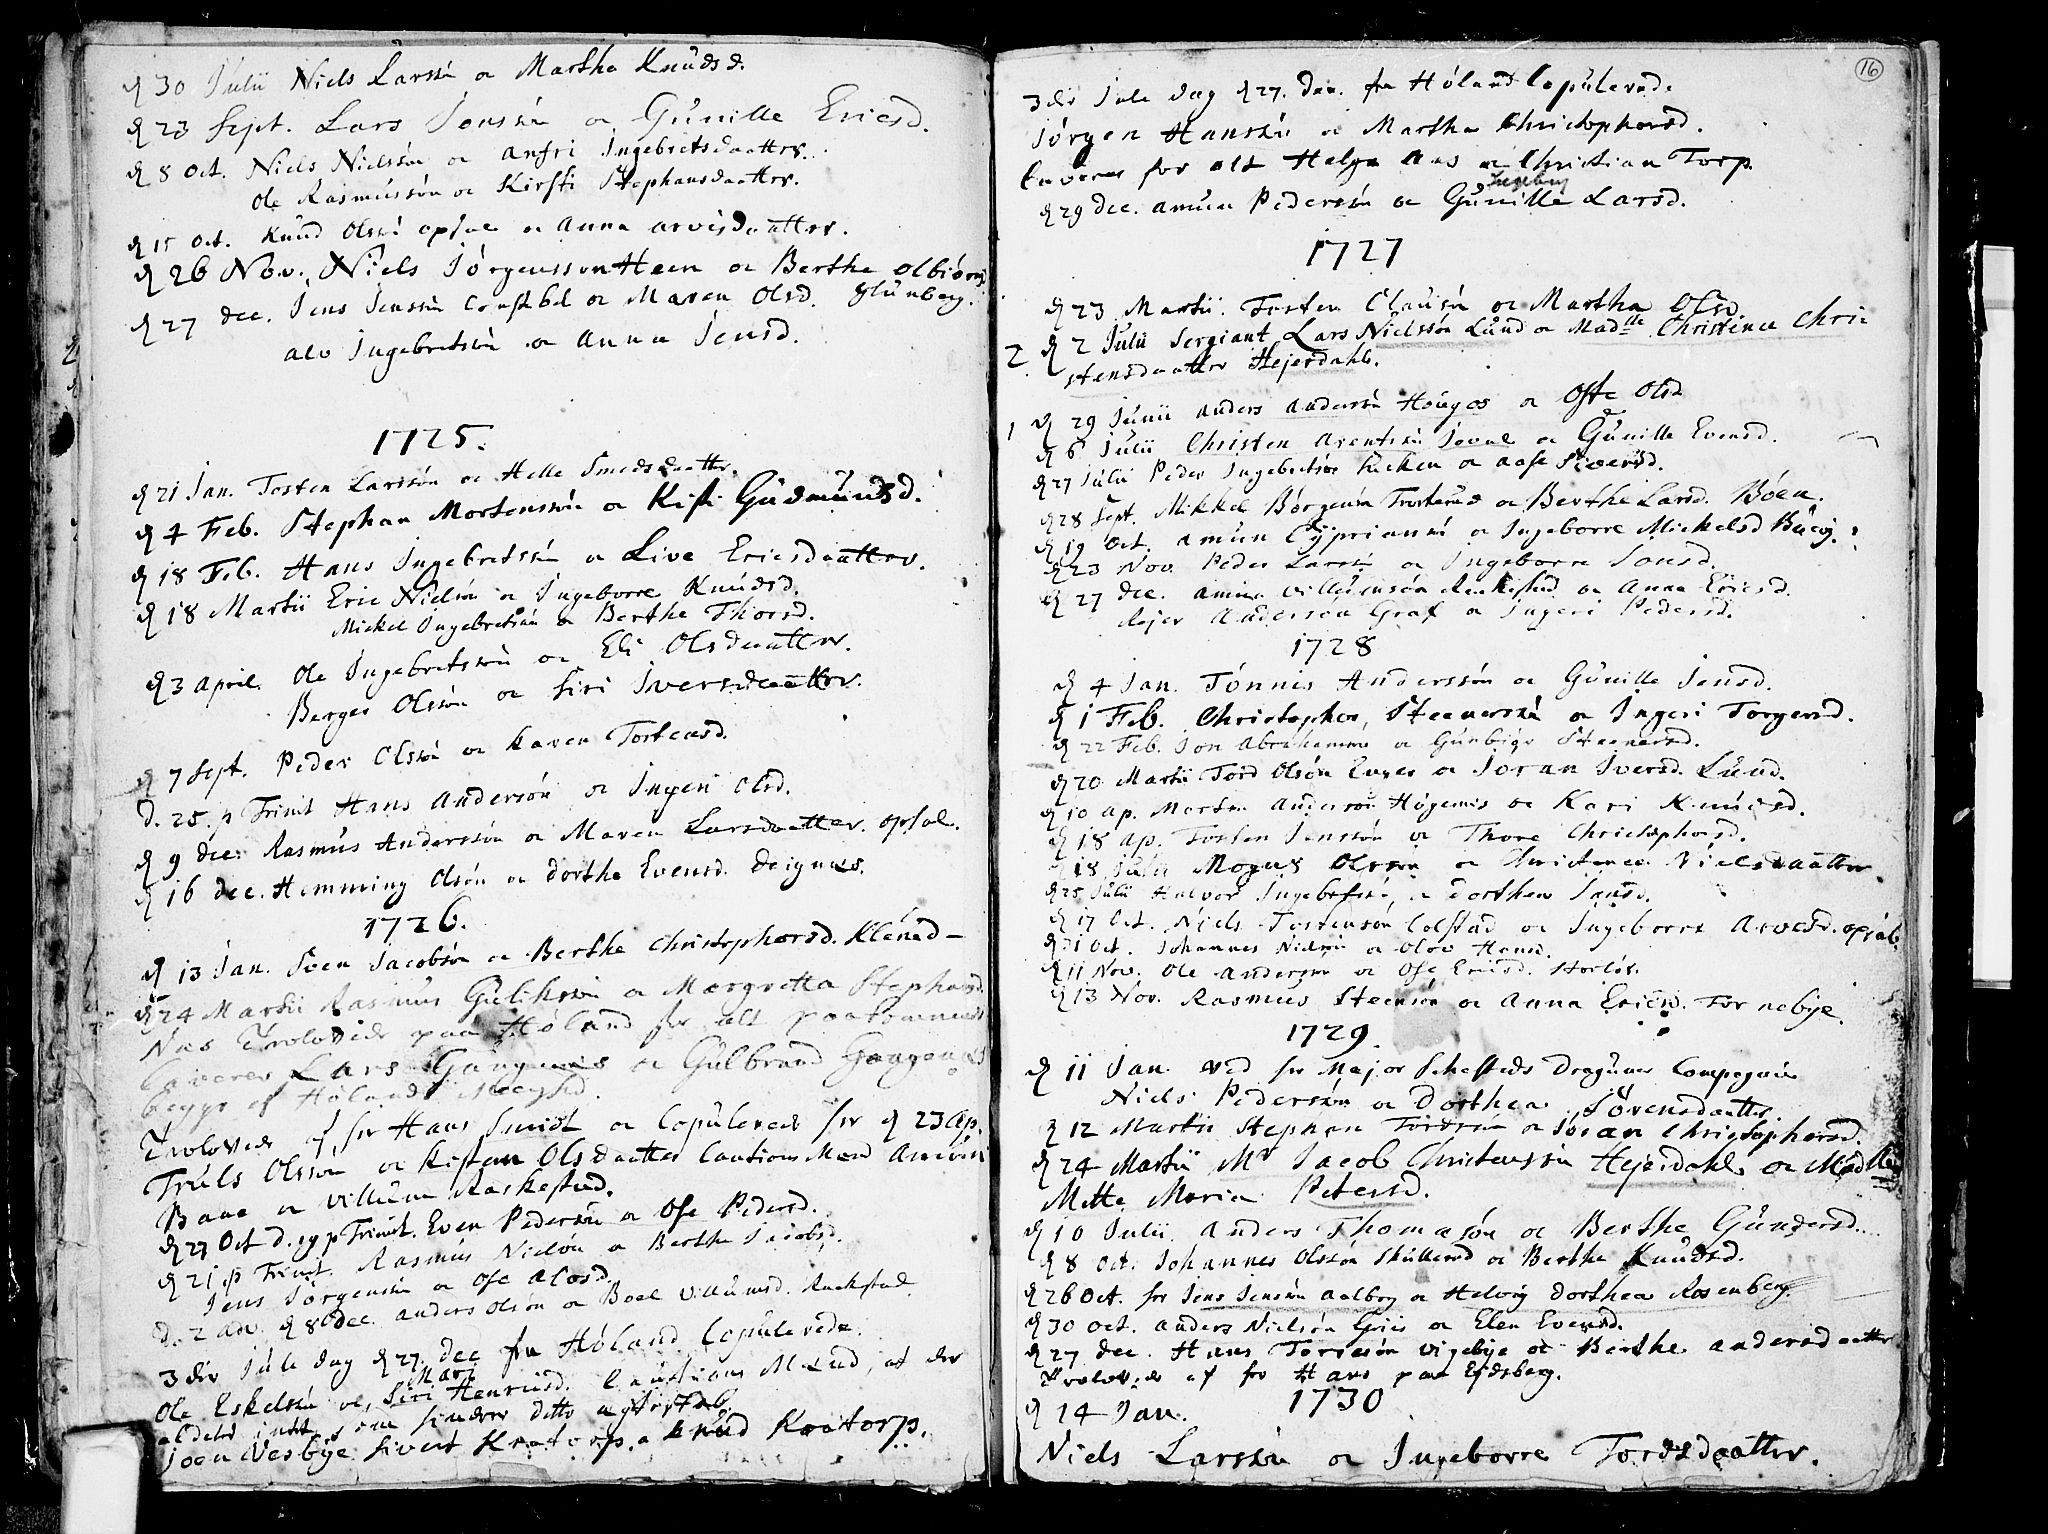 d 30 Julii Niels Larssøn oc Martha Knudsd.
d 23 Sept. Lars Jenssøn oc Gunille Ericsd.
d 8 Oct. Niels Nielssøn oc Anfri Ingebretsdaatter.
Ole Rasmussøn oc Kirsti Stephansdaatter.
d 15 Oct. Knud Olssøn opsal oc Anna Arvisdaatter.
d 26 Nov. Niels Jörgenssøn Heen oc Berthe Olbiörnsd.
Slünberg.
d 27 Dec. Jens Jenssøn Constbel oc Maren Olsd.
Alv Ingebretssøn oc Anna Jensd.
1725.
d 21 Jan. Tosten Larssøn oc Helle Smedsdaatter.
d 4 Feb. Stephan Mortenssøn oc Kisti Gudmundsd.
d 18 Feb. Hans Ingebretssøn oc Live Ericsdaatter.
d 18 Martii Eric Nielsøn oc Ingeborre Knudsd.
Mickel Ingebretsøn oc Berthe Thorsd.
d 3 April. Ole Ingebretssøn oc Eli Olsdaatter.
Berger Olssøn oc Siri Iversdaatter.
d 7 Sept. Peder Olssøn oc Karen Tostensd.
D. 25. p Trinit Hans Andersøn oc Ingeri Olsd.
d 9 Dec. Rasmus Anderssøn oc Maren Larsdaatter. opsal.
d 16 Dec. Hemming Olsøn oc Dorthe Evensd. Deignes.
1726.
d 13 Jan. Sven Jacobsøn oc Berthe Christophersd. Klened-
d 24 Martii Rasmus Guliksøn oc Margretta Stephansd.
Nus Troloved paa Höland for alt paakommende
Caverer Lars Gangnes oc Gulbrand Gangnes
begge af Hölands
Troloved af hr Hans Smidt oc Copuleret for d 23 Ap.
Truls Olssøn oc Kisten Olsdaatter Cautions Mænd Amun
Bane oc Villum Raskestad.
d 27 Oct D. 19 p Trinit. Even Pedersøn oc Ose Pedersd.
d 21 p Trinit. Rasmus Nielsøn oc Berthe Jacobsd.
Jens Jörgensøn oc Ose Alvsd.
D. 2 Adv. d 8 Dec. Anders Olsøn oc Boel Villumsd. Rackstad.
3die Jule Dag d 27. Dec fra Höland Copulerede.
Mari
Ole Eskelsøn oc, Siri Henricsd. Cautions Mænd, at der
aldeles intet som hindrer dette ægteskab.
Joen Vesbye Sivert Kraatorp. oc Knud Kraatorp.
16
3die Jule Dag d 27. Dec. fra Höland Copulered.
Jörgen Hanssøn oc Martha Christophersd.
Caverer for alt Helge Aas oc Christian Torp.
Ingeborg
d 29 Dec. Amun Pederssøn oc Gunille Larsd.
1727
d 23 Martii. Tosten Clausøn oc Martha Olsd.
2. d 2 Julii Sergiant Lars Nielssøn Lund oc Madlle Christina Chri-
stensdaatter Hejerdahl.
d 29 Junii Anders Anderssøn Hougos oc Oste Olsd
1 d 6 Julii Christen Arentsøn oc Gunille Evensd.
d 27 Julii Peder Ingebretsøn oc Aase Siversd.
d 28 Sept. Mikkel Börgensøn Trosterud oc Berthe Larsd. Böen.
d 19 Oct. Amun Cypriansøn oc Ingeborre Mickelsd
d 23 Nov. Peder Larssøn oc Ingeborre Jonsd.
d 27 Dec. Amun Villumsøn Raskestad oc Anna Ericsd.
Rejer Andersøn Graf oc Ingeri Pedersd.
1728
d 4 Jan. Tönnis Anderssøn oc Gunille Jensd.
d 1 Feb. Christopher Steenersøn oc Ingeri Torgersd.
d 22 Feb. Jon Abrahamsøn oc Gunbiör Steenersd.
d 20 Martii Tord Olsøn Enger oc Joran Iversd. Lund.
d 10 Ap. Morten Andersøn Högenes oc Kari Knudsd.
d 18 Ap. Tosten Jenssøn oc Thore Christophersd.
d 18 Julii Mogns Olsson oc Nielsdaatter.
d 25 Julii Halvor Ingebretsøn oc Dorthea Jensd.
d 17 Oct. Niels Tostensøn Colstad oc Ingeborre Arvesd. opsal.
d 31 Oct. Johannes Nielsøn oc Olov Hansd.
d 11 Nov. Ole Andersøn oc Ose Ericsd.
d 13 Nov. Rasmus Steensøn oc Anna Ericsd. Tornebye.
1729.
d 11 Jan. ved hr Major Schesteds Dragune Compagnie
Niels Pederssøn oc Dorthea Sörensdaatter.
d 12 Martii Stephan Tordssøn oc Joran Christophersd.
d 24 Martii Mr Jacob Christenssøn Hejerdahl oc Madlle
Mette Maria Petersd.
d 10 Julii. Anders Thomasøn oc Berthe Gundersd.
d 8 Oct. Johannes Olssøn Skullerud oc Berthe Knudsd.
d 26 Oct. hr Jens Jensøn Aalborg oc Helvig Dorthea Rosenberg.
d 30 Oct. Anders Nielsøn Griis oc Elen Evensd.
d 27 Dec. Hans Torresøn Vigebye oc Berthe Andersdaatter
Troloved af hr Hans paa Ejdsberg.
1730
d 14 Jan.
Niels Larssøn oc Ingeborre Tordsdaatter.